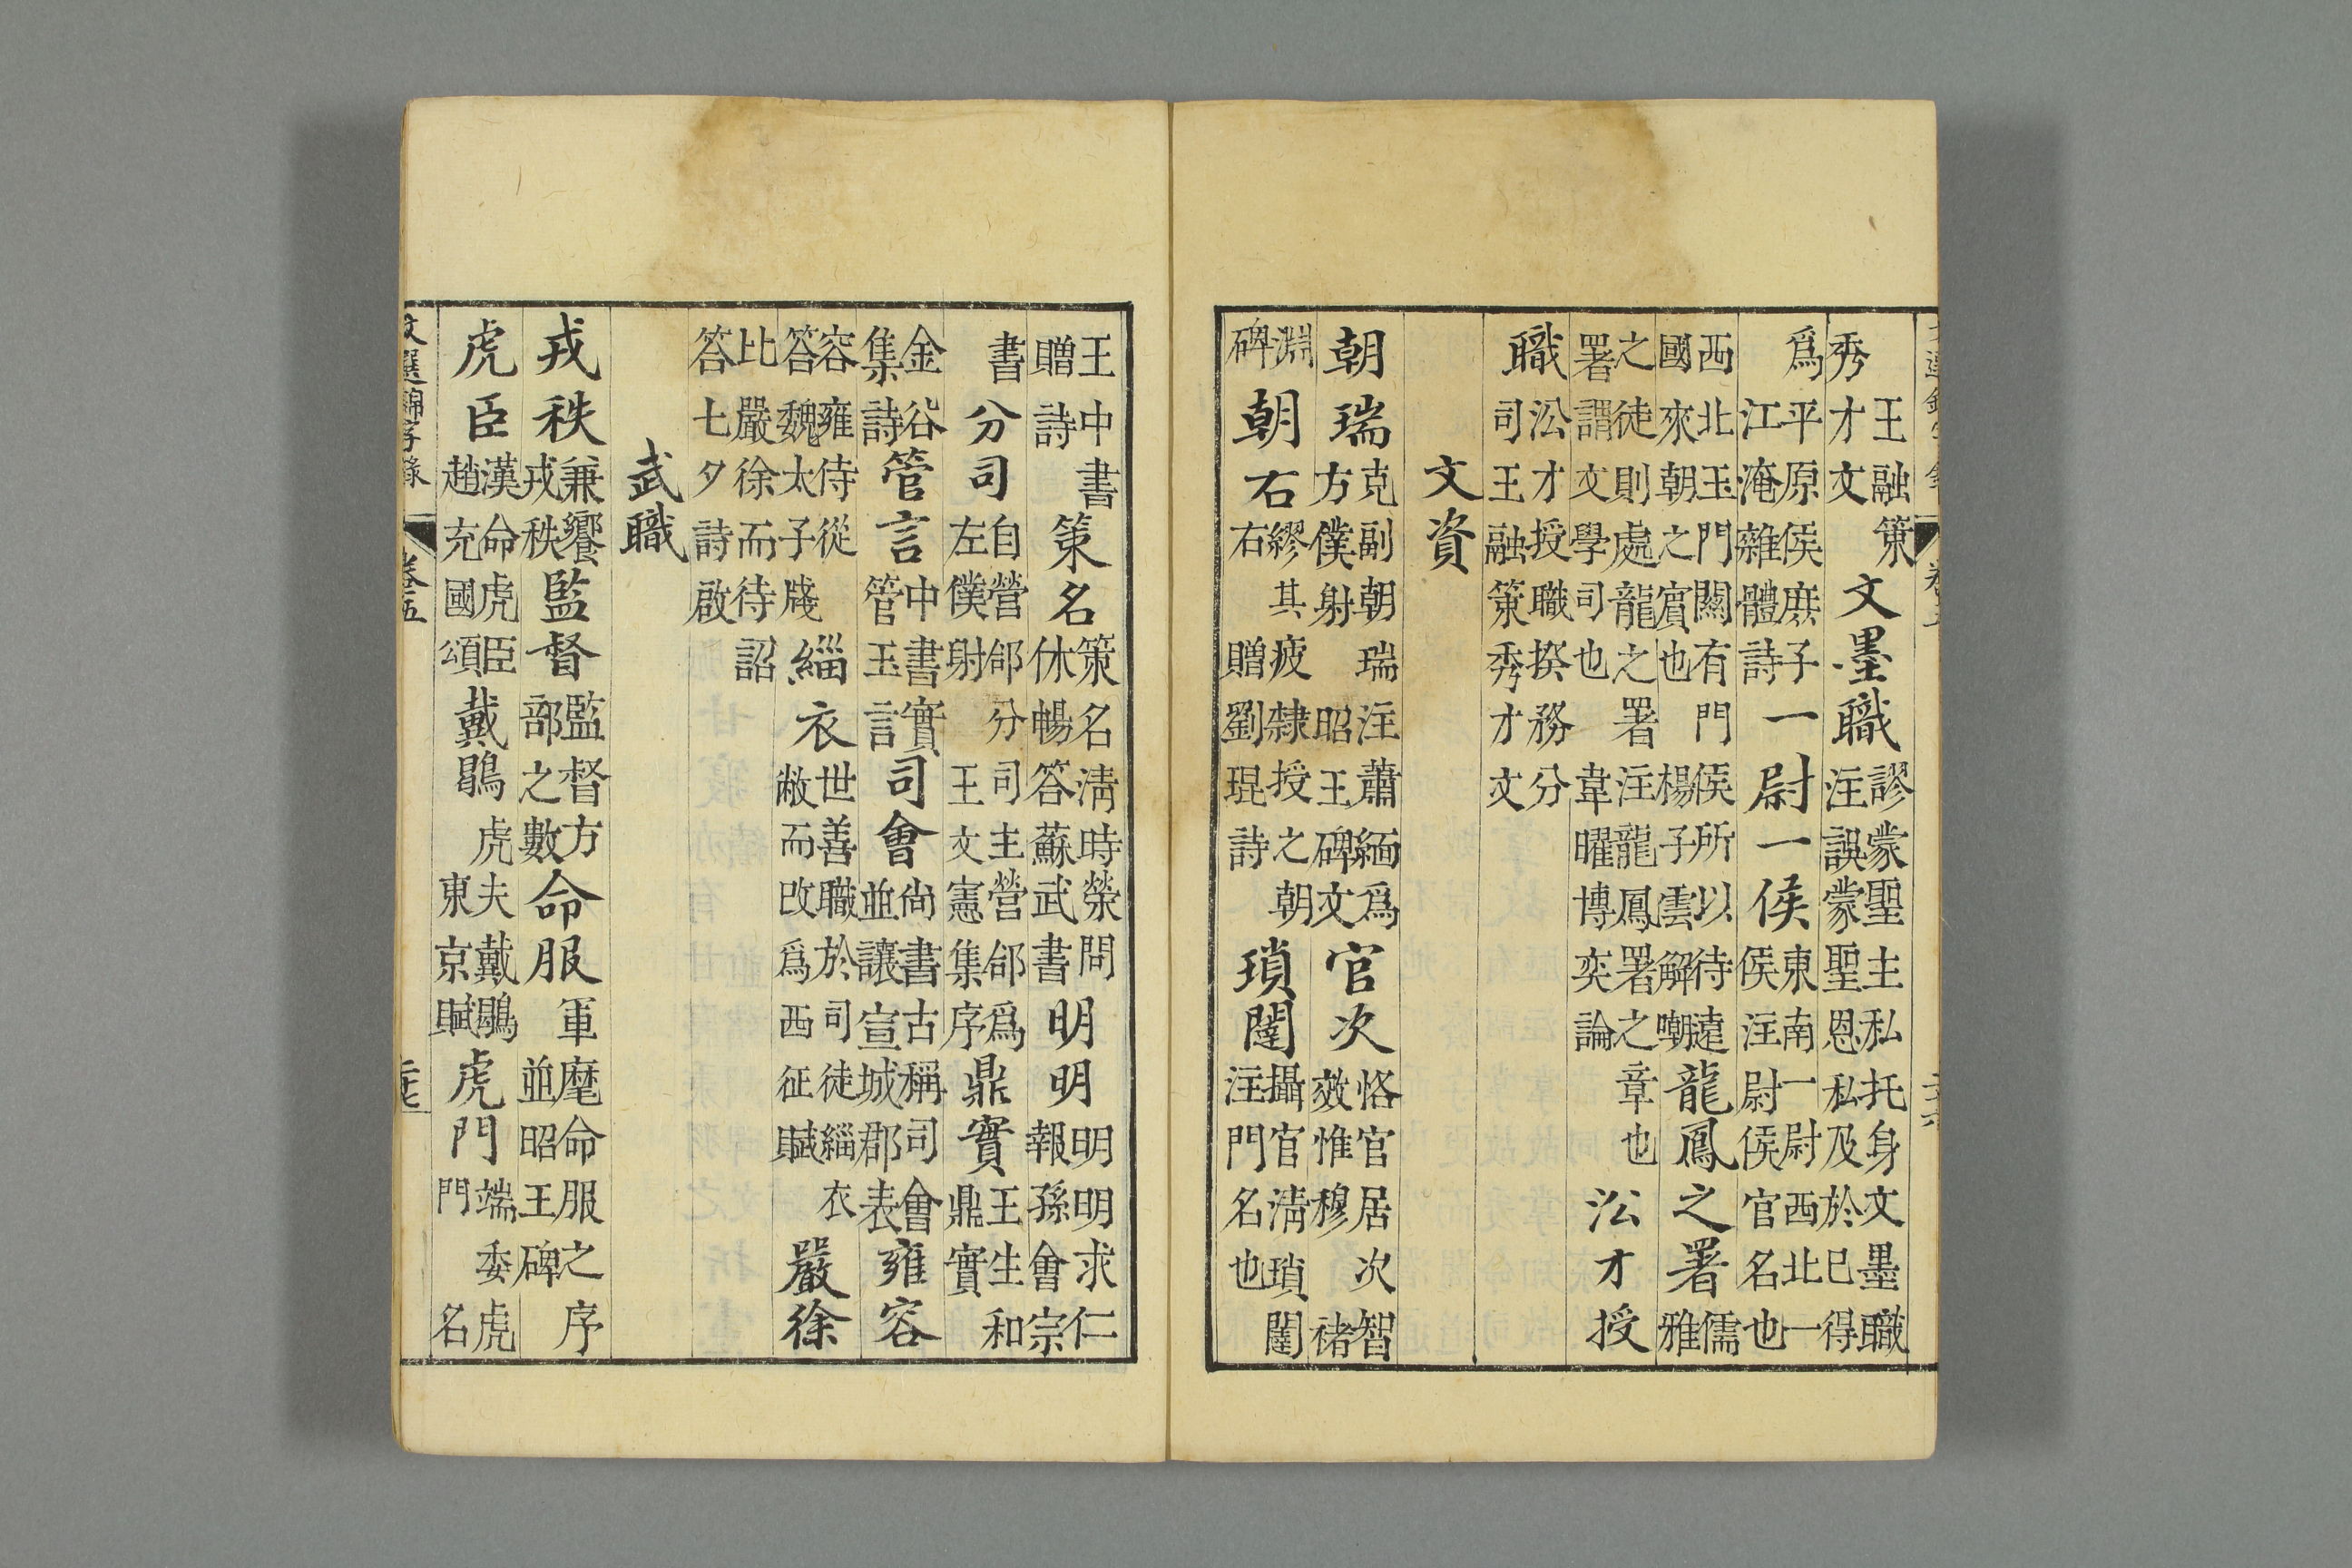 王融策
秀才文
文墨職
謬蒙聖主私托身文墨職
注誤蒙聖恩私及於已得
爲平原侯庶子
江淹雜體詩
一尉一侯
東南一尉西北一
侯注尉侯官名也
西北玉門關有門侯所以待遠
國來朝之賓也楊子雲解嘲
龍鳳之署
儒
雅
之徒則處龍之署注龍鳳署之章也
署謂文學司也韋曜博奕論
㳂才授
職
㳂才授職揆務分
司王融策秀才文
文資
朝瑞
克副朝瑞注蕭緬爲
方僕射昭王碑文
官次
恪官居次智
效惟穆褚
淵
碑
朝右
繆其疲隸授之朝
右贈劉琨詩
瑣闥
攝官淸瑣闥
注門名也
王中書
贈詩
策名
策名淸時榮問
休暢答蘇武書
明明
明明求仁
報孫會宗
書
分司
自營郃分司主營郃爲
左僕射王文憲集序
鼎實
王生和
鼎實
金谷
集詩
管言
中書實
管玉言
司會
尙書古稱司會
並讓宣城郡表
雍容
容雍侍從
答魏太子牋
緇衣
世善職於司徒緇衣
敝而改爲西征賦
嚴徐
比嚴徐而待詔
答七夕詩啟
武職
戎秩
兼饗
戎秩
監督
監督方
部之數
命服
軍麾命服之序
並昭王碑
虎臣
漢命虎臣
趙充國頌
戴鶡
虎夫戴鶡
東京賦
虎門
端委虎
門名
文選錦字錄 卷五 二十七